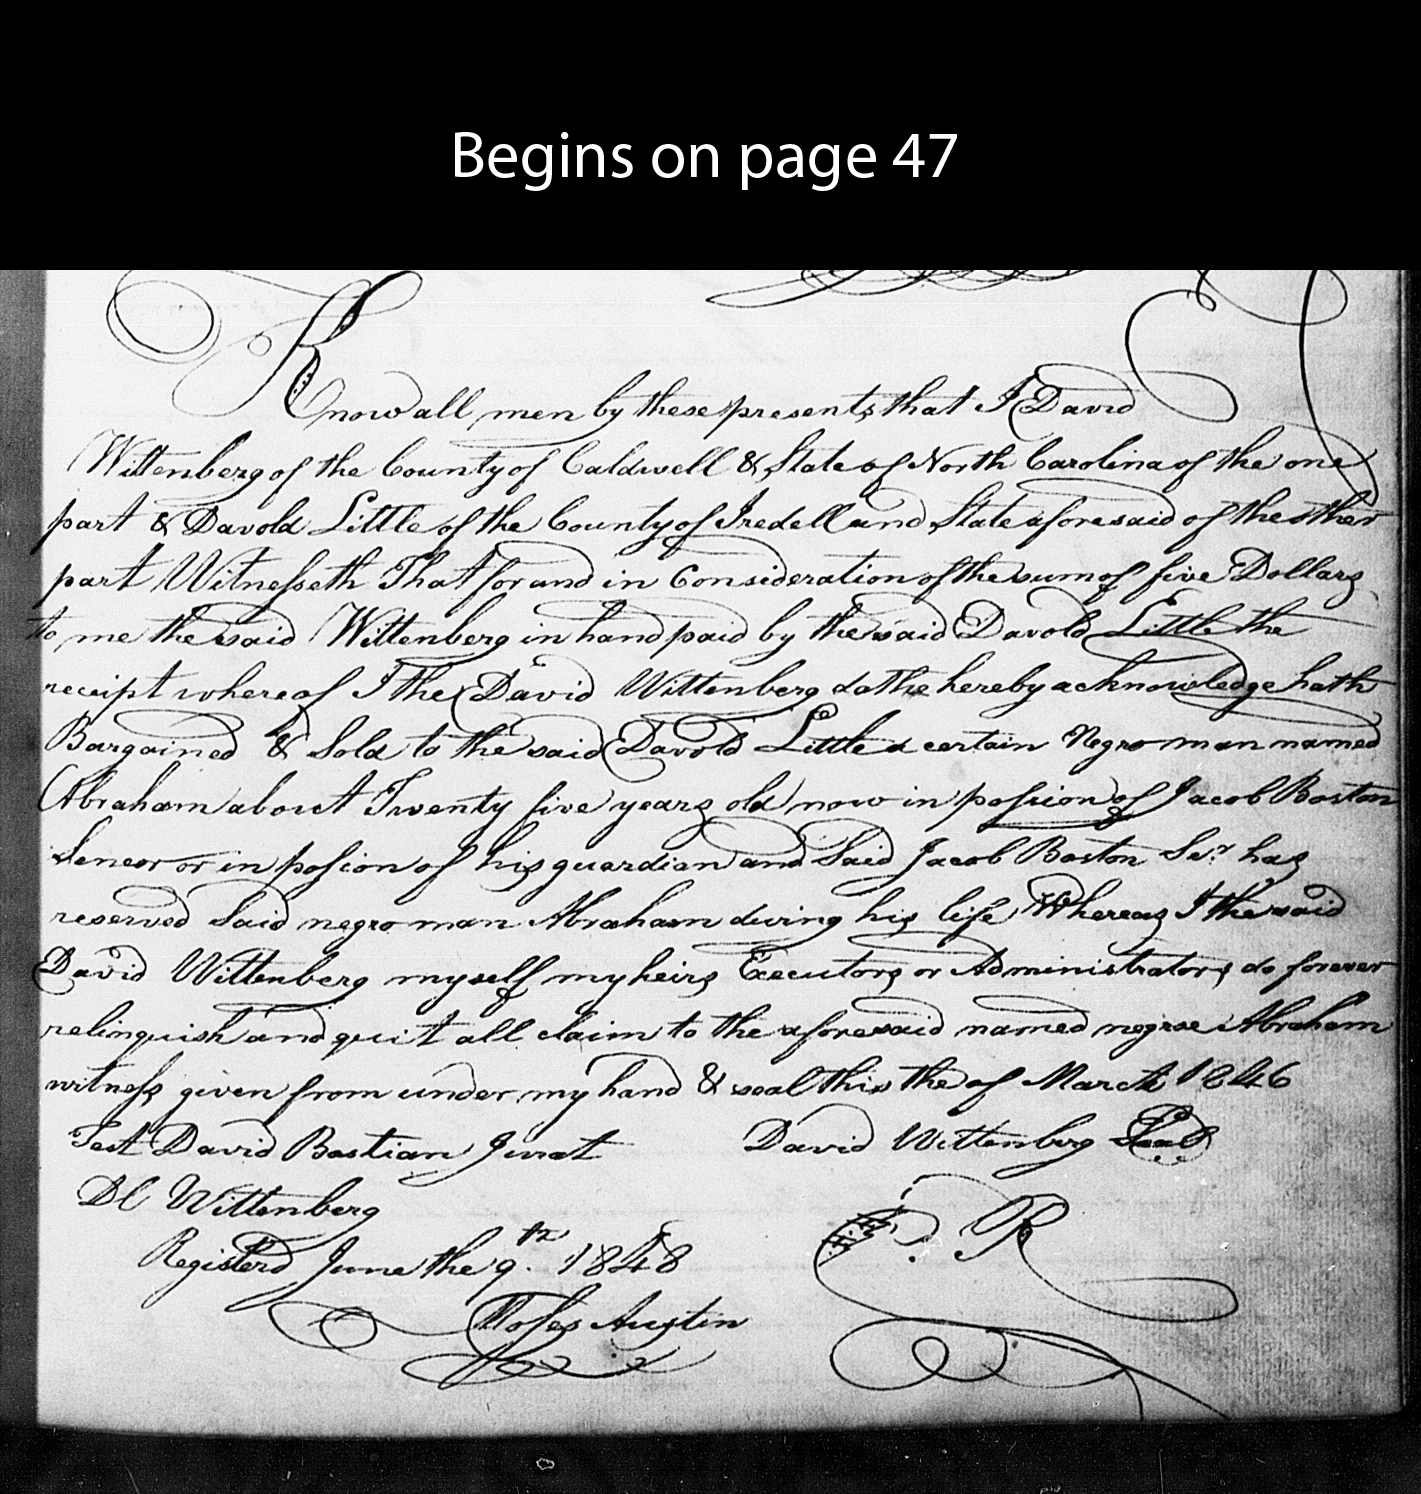 Begins on page 47
Know all men by these presents that I David
Wittenberg of the County of Caldwell & State of North Carolina of the one
part & Davold Little of the County of Iredell and State aforesaid of the other
part Witnesseth That for and in Consideration of the sum of five Dollars
to me the said Wittenberg in hand paid by the said Davold Little the
receipt whereof I the David Wittenberg dothe hereby acknowledge hath
Bargained & Sold to the said Davold Little a certain Negro man named
Abraham about Twenty five years old now in possion of Jacob Boston
Seneor or in possion of his guardian and Said Jacob Boston Senr. has
reserved Said negro man Abraham during his life Whereas I the said
David Wittenberg myself my heirs Executors or Administrators do forever
relinquish and quit all claim to the aforesaid named negroe Abraham
witness given from under my hand & seal this the of March 1846
Test David Bastian Jurat David Wittenberg Seal
DC Wittenberg
Registerd June the 9th. 1848 R
Moses Austin